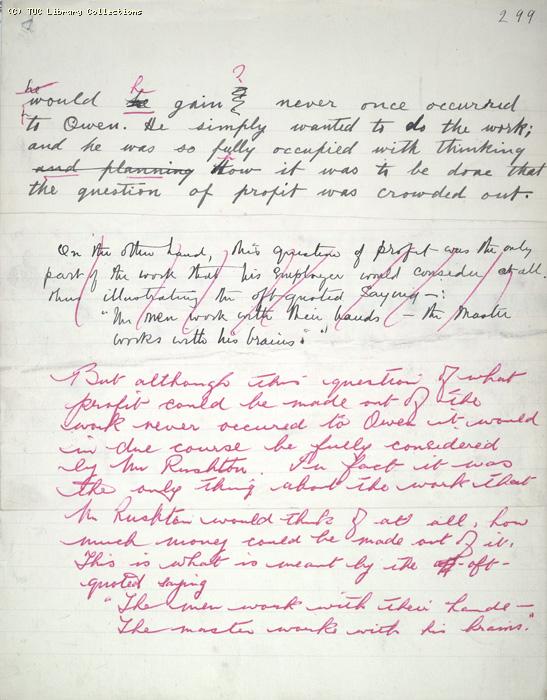 (C) TUC Library Collections
299
he
?
would he gain never once occurred
to Owen. He simply wanted to do the work;
and he was so fully occupied with thinking
and planning how it was to be done that
the question of profit was crowded out.
On the other hand, this question of profit was the only
part of the work that his Employer would consider at all.
thus illustrating the oft-quoted Saying -:
"The men work with their hands - the Master
works with his brains."
But although this question of what
profit could be made out of the
work never occured to Owen it would
in due course be fully considered
by Mr Rushton. In fact it was
the only thing about the work that
Mr Rushton would think of at all, how
much money could be made out of it.
This is what is meant by the oft-
quoted saying
"The men work with their hands -
The master works with his brains."